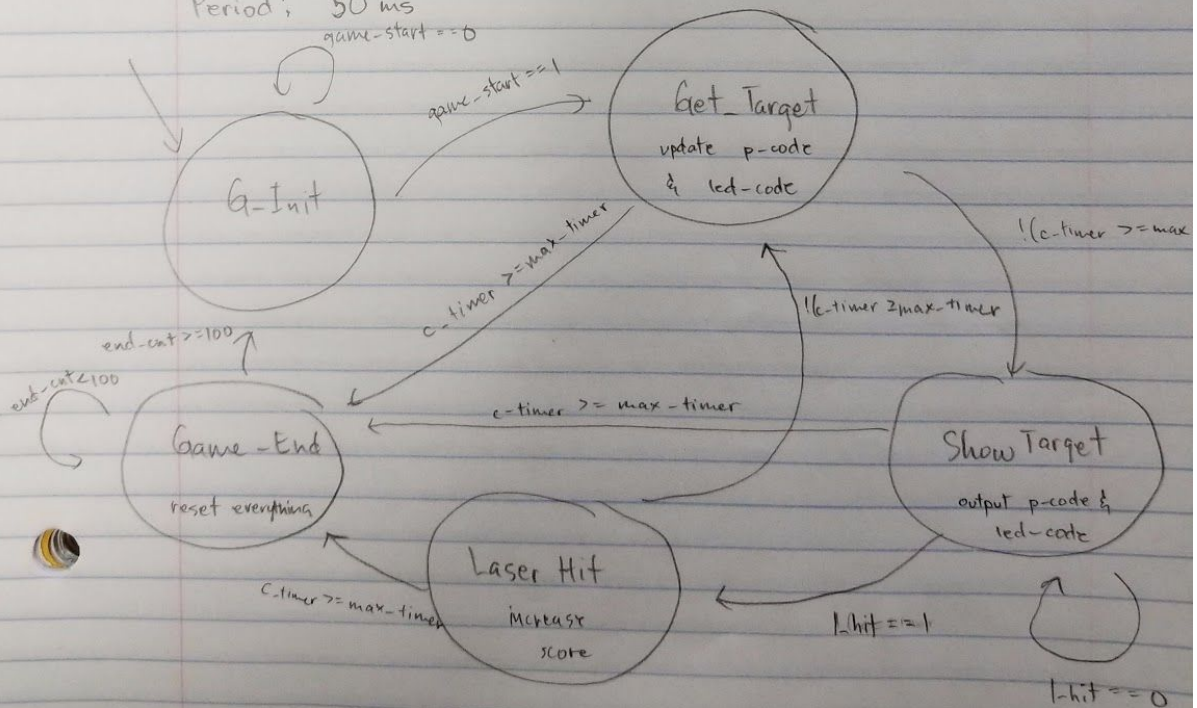 Period; 50 ms
game-start == 0
game_start == 1
G_Init
Get_Target
update p-code
& led-code
c_timer >= max-timer
!(c-timer >= max
!(c-timer ≥ max-timer
end-cnt >= 100
end-cnt < 100
Game-End
reset everything
c-timer >= max-timer
Show Target
output p-code &
led-code
Laser Hit
increase
score
c-timer >= max-timer
l-hit == 1
l-hit == 0